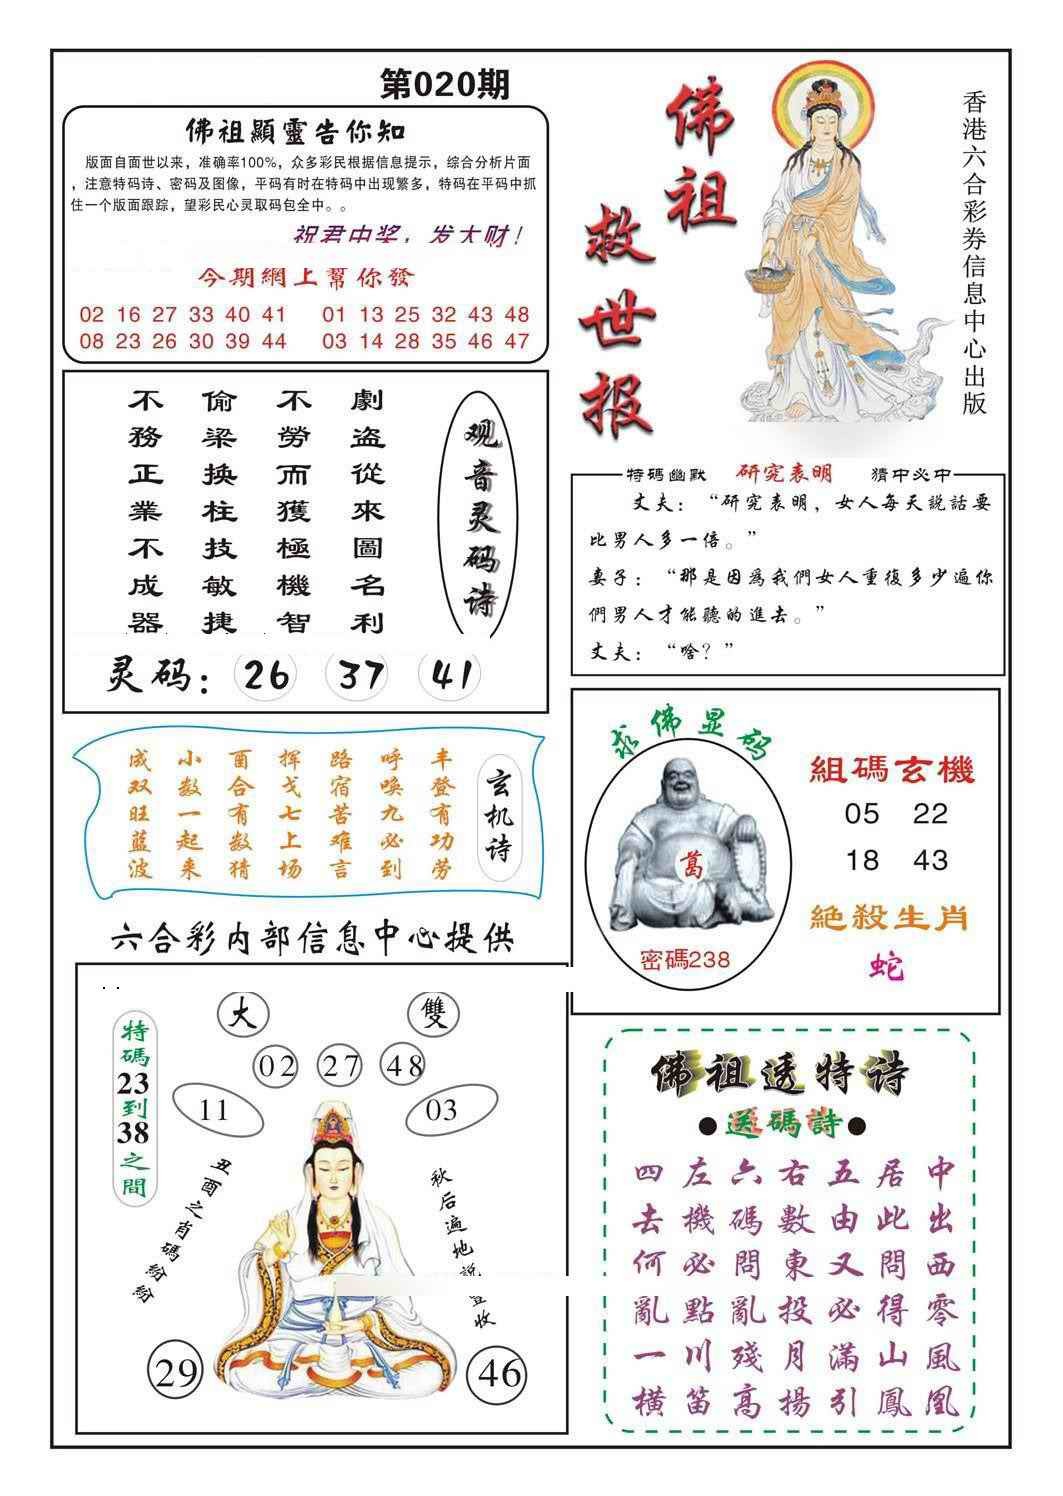 第020期
佛祖顯靈告你知
版面自面世以来，准确率100%，众多彩民根据信息提示，综合分析片面
，注意特码诗、密码及图像，平码有时在特码中出现繁多，特码在平码中抓
住一个版面跟踪，望彩民心灵取码包全中。。
祝君中奖，发大财！
今期網上幫你發
02 16 27 33 40 41 01 13 25 32 43 48
08 23 26 30 39 44 03 14 28 35 46 47
佛祖
救世报
香港六合彩券信息中心出版
观音灵码诗
劇盗從來圖名利
不勞而獲極機智
偷梁换柱技敏捷
不務正業不成器
灵码：26 37 41
特碼幽默 研究表明 猜中必中
丈夫：“研究表明，女人每天説話要
比男人多一倍。”
妻子：“那是因爲我們女人重復多少遍你
們男人才能聽的進去。”
丈夫：“啥？”
玄机诗
丰登有功劳
呼唤九必到
路宿苦难言
挥戈七上场
酉合有数猜
小数一起来
成双旺蓝波
求佛显码
葛
密碼238
組碼玄機
05 22
18 43
絕殺生肖
蛇
六合彩内部信息中心提供
特碼23到38之間
大 雙
02 27 48
11 03
丑酉之肖碼紛紛
秋后遍地説豐收
29 46
佛祖透特诗
●送碼詩●
中出西零風凰
居此問得山鳳
五由又必滿引
右數東投月揚
六碼問亂殘高
左機必點川笛
四去何亂一橫